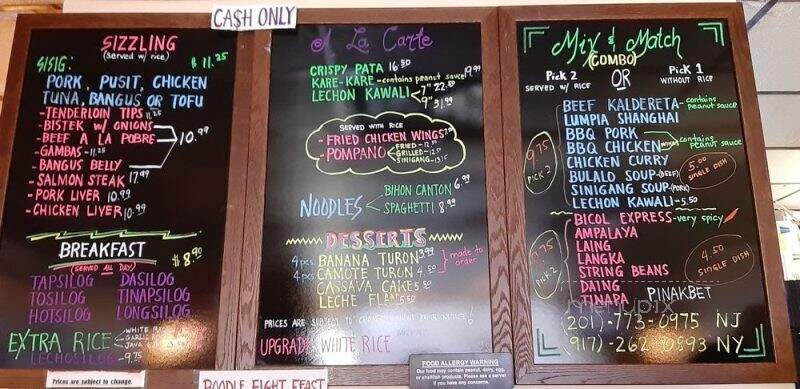 CA$H ONLY
SIZZLING
(served w/ rice)
SISIG: $11.25
PORK, PUSIT, CHICKEN
TUNA, BANGUS OR TOFU
- TENDERLOIN TIPS 11.25
- BISTEK w/ ONIONS
- BEEF A LA POBRE
10.99
- GAMBAS - 11.25
- BANGUS BELLY
- SALMON STEAK 17.99
- PORK LIVER 10.99
- CHICKEN LIVER 10.99
BREAKFAST
(SERVED ALL DAY)
$8.90
TAPSILOG DASILOG
TOSILOG TINAPSILOG
HOTSILOG LONGSILOG
EXTRA RICE
WHITE
GARLIC
JAVA
LECHOSILOG - 9.75
Prices are subject to change.
A La Carte
CRISPY PATA 16.50
KARE-KARE - contains peanut sauce 19.99
LECHON KAWALI 7" 22.50
9" 31.99
SERVED WITH RICE
- FRIED CHICKEN WINGS
- POMPANO
FRIED - 12.50
GRILLED - 12.50
SINIGANG - 13.75
NOODLES
BIHON CANTON 6.99
SPAGHETTI 8.99
DESSERTS
4 pcs BANANA TURON 3.99
4 pcs CAMOTE TURON 4.50
made to order
CASSAVA CAKE 5.50
LECHE FLAN 5.50
PRICES ARE SUBJECT TO CHANGE WITHOUT PRIOR NOTICE!
UPGRADE WHITE RICE
BOODLE FIGHT FEAST
FOOD ALLERGY WARNING
Our food may contain peanut, dairy, egg,
or shellfish products. Please ask a server
if you have any concerns.
Mix & Match
(COMBO)
Pick 2 OR Pick 1
SERVED W/ RICE WITHOUT RICE
BEEF KALDERETA - contains peanut sauce
LUMPIA SHANGHAI
BBQ PORK
BBQ CHICKEN WINGS
contains peanut sauce
CHICKEN CURRY
BULALO SOUP (BEEF)
SINIGANG SOUP (PORK)
LECHON KAWALI - 5.50
9.75
PICK 2
5.00
SINGLE DISH
BICOL EXPRESS - very spicy
AMPALAYA
LAING
LANGKA
STRING BEANS
DAING
TINAPA PINAKBET
7.75
PICK 2
4.50
SINGLE DISH
menupix
(201)-773-0975 NJ
(917)-262-0893 NY